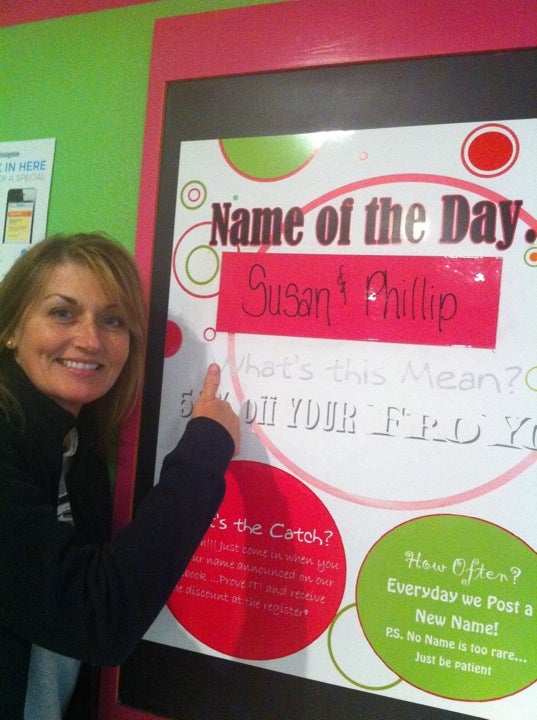 IN HERE
A SPECIAL
Name of the Day.
Susan & Phillip
What's this Mean?
off YOUR FRO Y
's the Catch?
!!! Just come in when you
name announced on our
book...Prove IT! and receive
discount at the register!
How Often?
Everyday we Post a
New Name!
P.S. No Name is too rare...
Just be patient